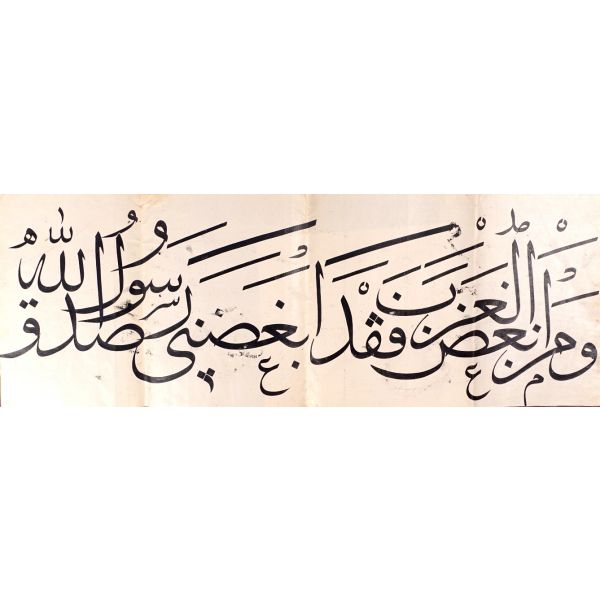 ومن ابغض العرب فقد ابغضني صدق رسول الله